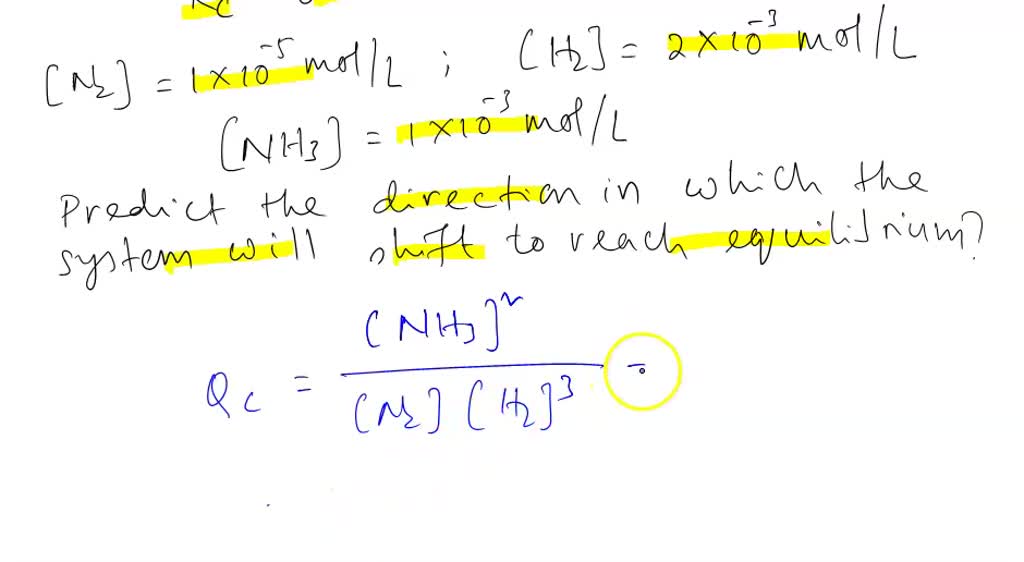 Kc
[N2] = 1×10⁻⁵ mol/L ; [H2] = 2×10⁻³ mol/L
[NH3] = 1×10⁻³ mol/L
Predict the direction in which the
system will shift to reach equilibrium?
Qc = [NH3]² / [N2] [H2]³ =